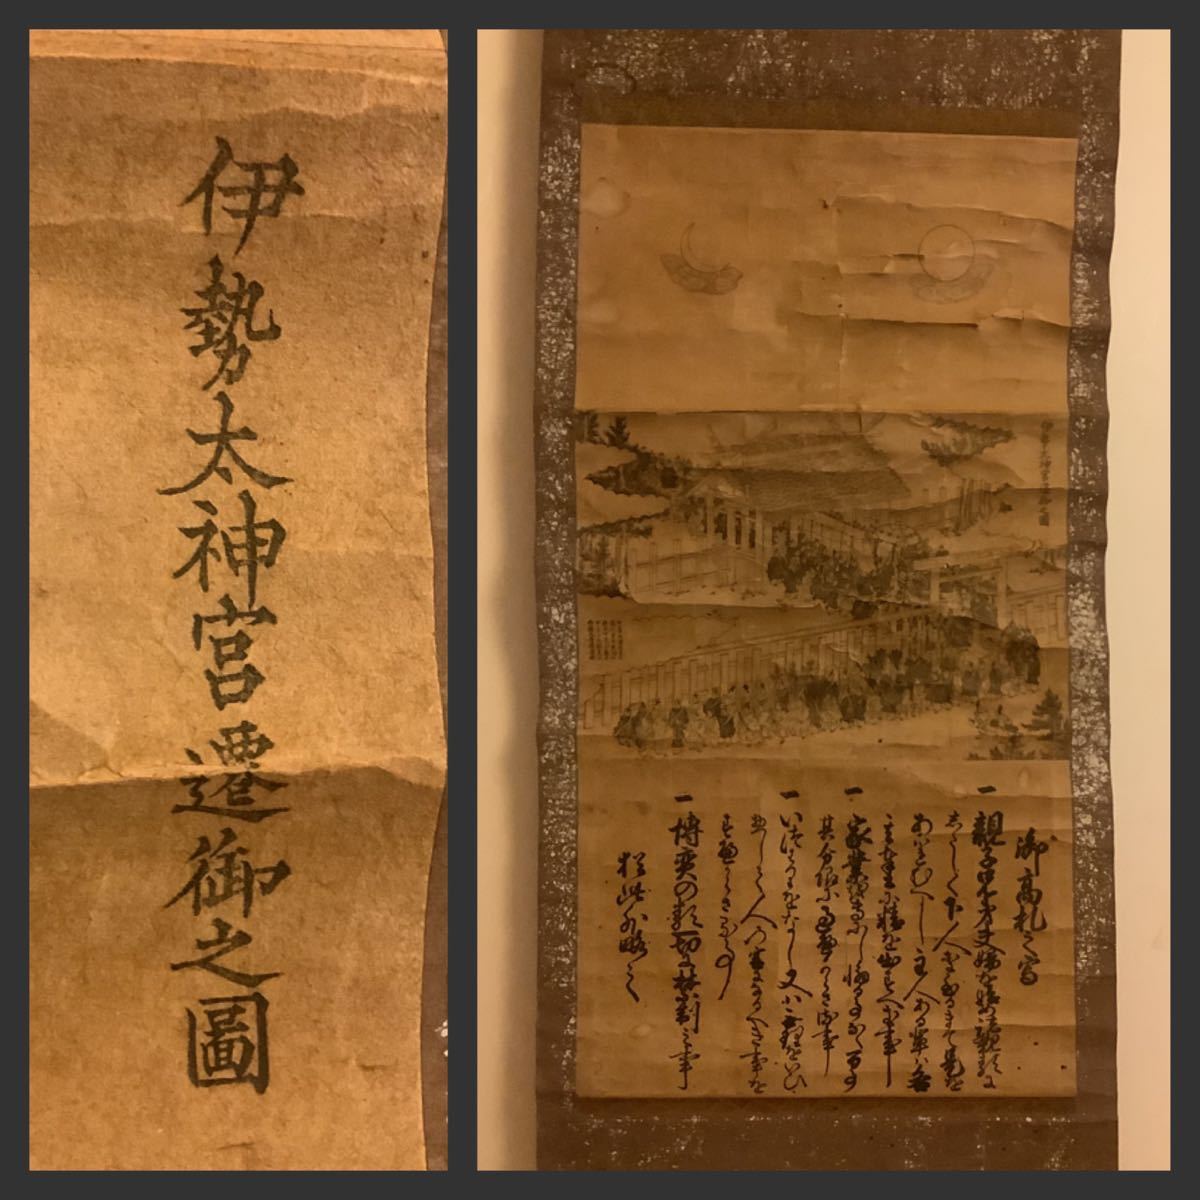 伊勢太神宮遷御之圖
伊勢太神宮遷御之圖
御高札之写
一 親子兄弟夫婦を始め諸親類に
したしく下人等に至るまて是を
あはれむへし主人ある輩ハ各
其奉公に精を出すへき事
一 家業専にし懈る事なく万事
其分限に過へからさる事
一 いつはりをなし又ハ無理をいひ
惣して人の害になるへき事を
すへからさる事
一 博奕の類一切に禁制之事